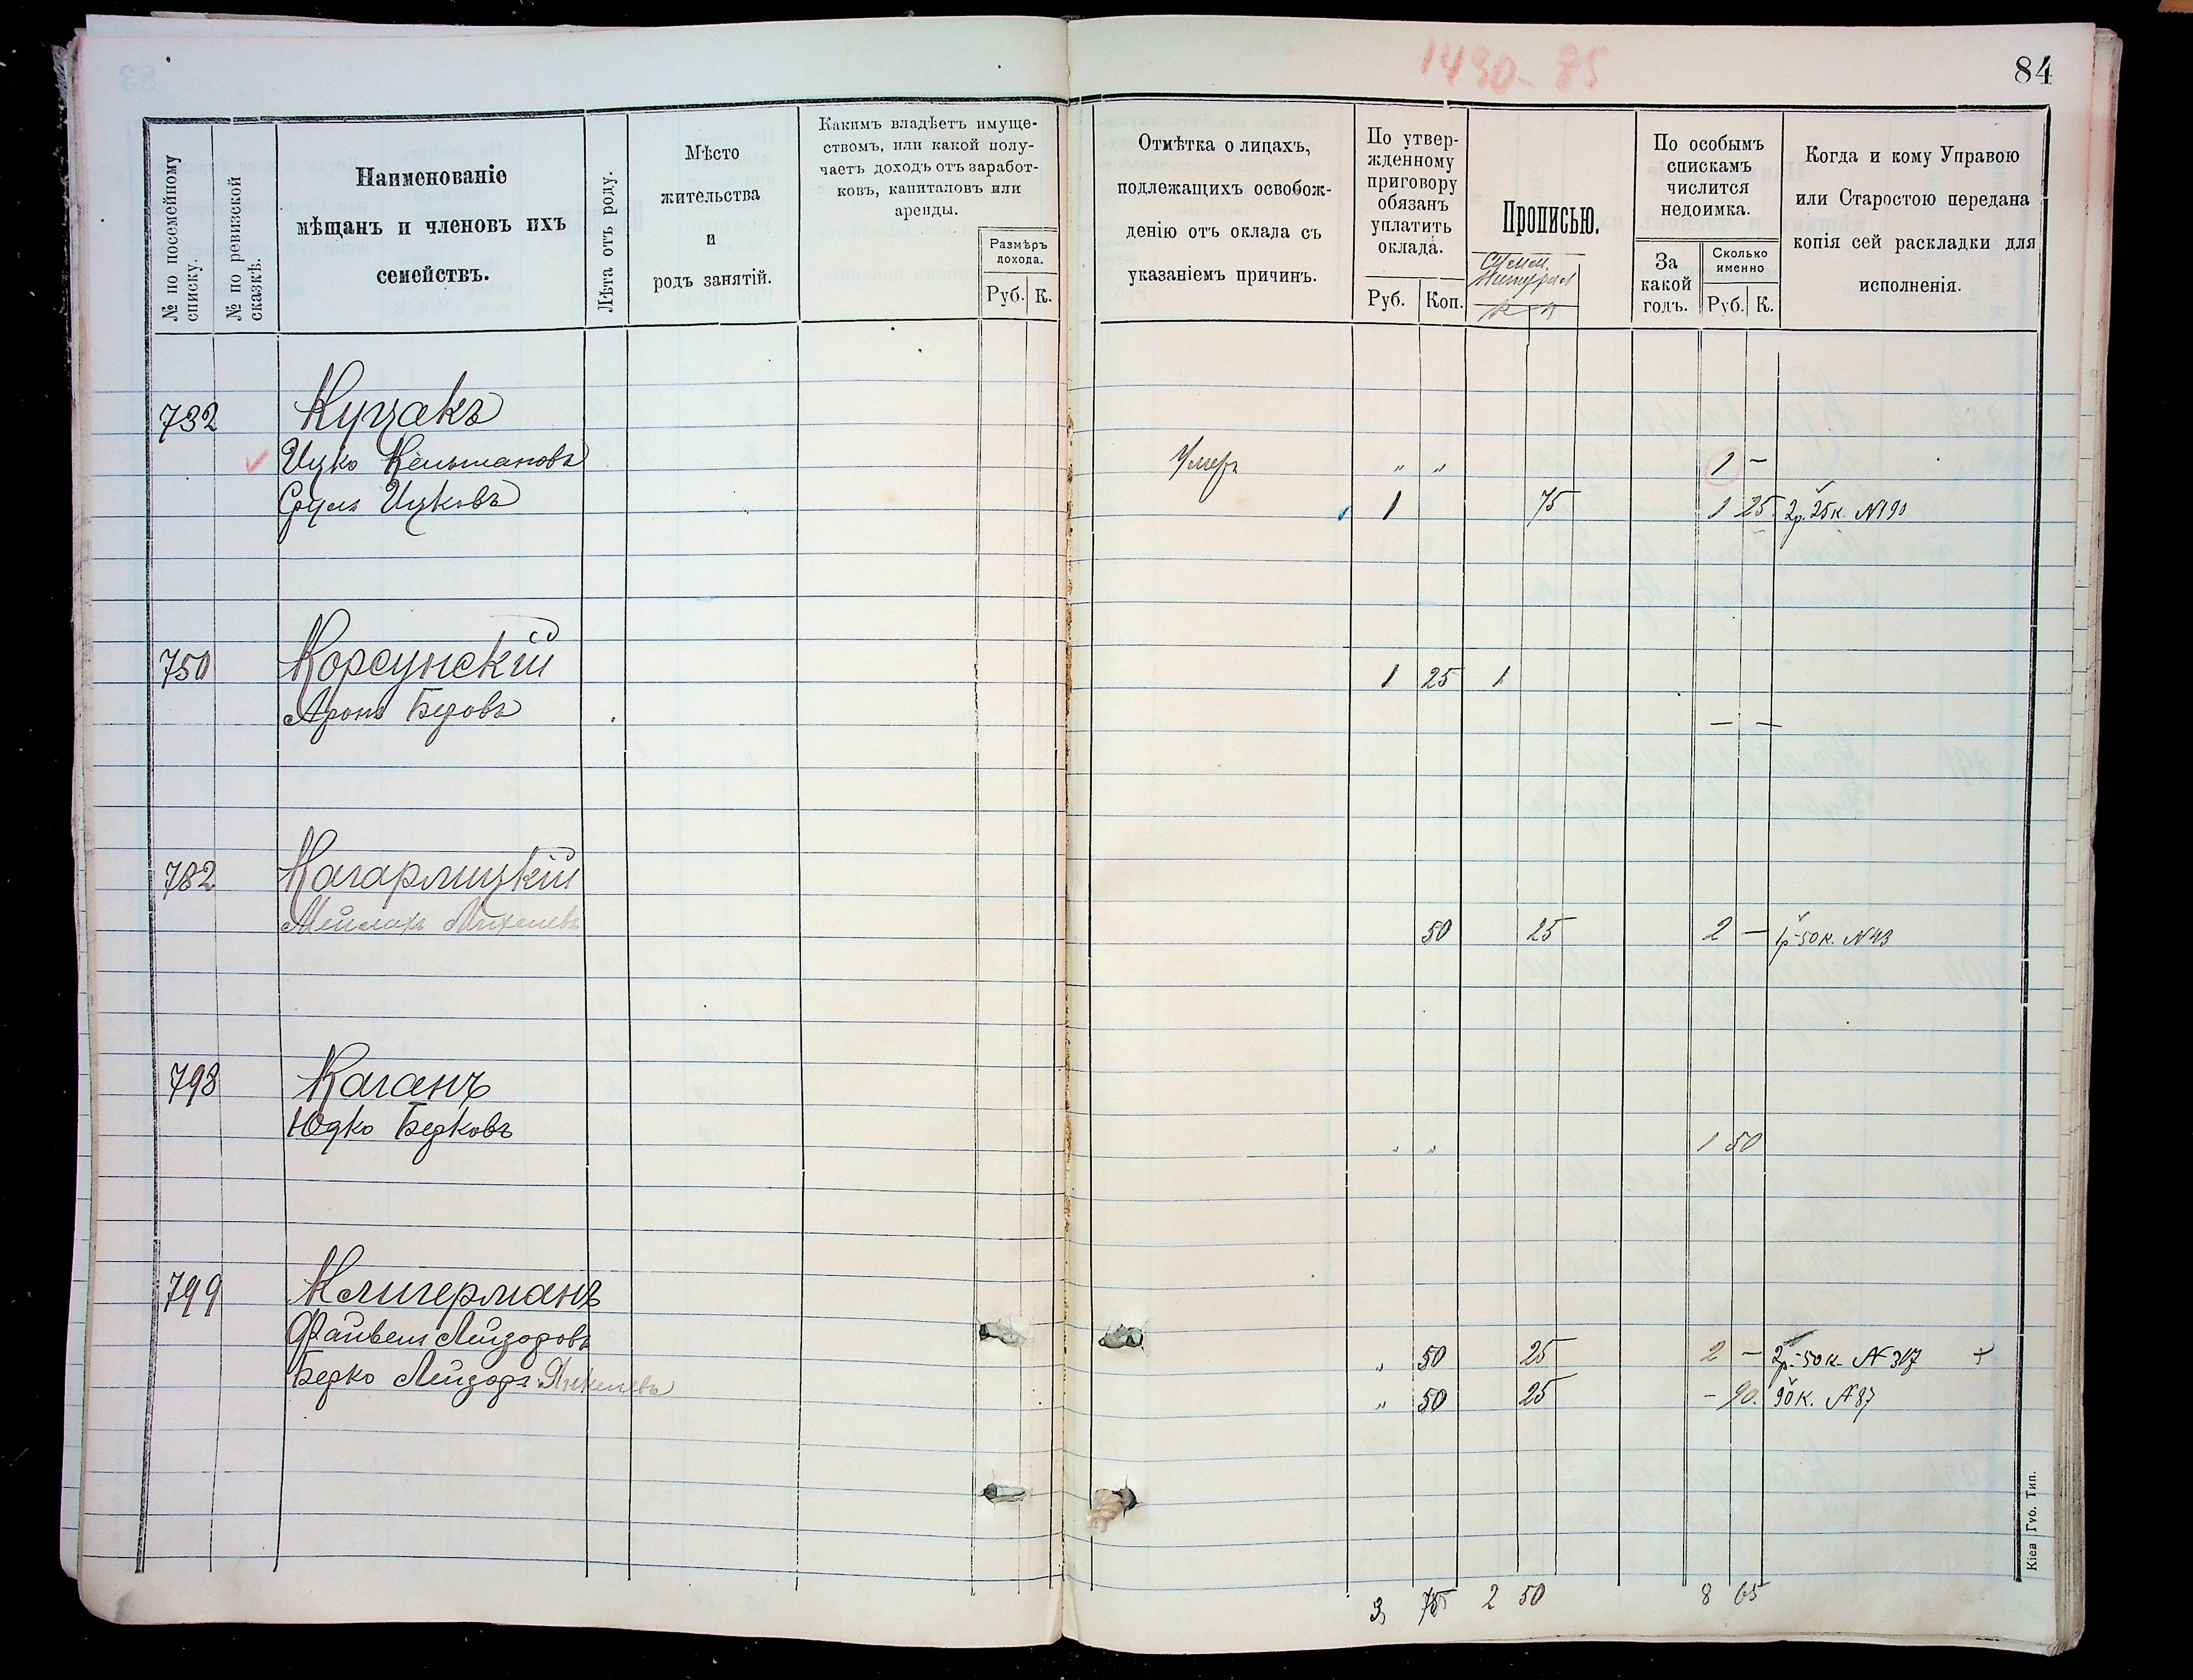 1490-85
84
№ по посемейному списку.
№ по ревизской сказкѣ.
Наименованіе
мѣщанъ и членовъ ихъ
семействъ.
Лѣта отъ роду.
Мѣсто
жительства
и
родъ занятій.
Какимъ владѣетъ имуще-
ствомъ, или какой полу-
чаетъ доходъ отъ заработ-
ковъ, капиталовъ или
аренды.
Размѣръ
дохода.
Руб. К.
Отмѣтка о лицахъ,
подлежащихъ освобож-
денію отъ оклада съ
указаніемъ причинъ.
По утвер-
жденному
приговору
обязанъ
уплатить
оклада.
Руб. Коп.
Прописью.
По особымъ
спискамъ
числится
недоимка.
За
какой
годъ.
Сколько
именно
Руб. К.
Когда и кому Управою
или Старостою передана
копія сей раскладки для
исполненія.
732 Куцакъ
Ицко Кельмановъ Умеръ " " 1 -
Сруль Ицковъ 1 75 1 25 2р. 25к. №190
750 Корсунскій 1 25 1
Аронъ Беровъ — —
782 Кагарлицкій
Мейлахъ Михелевъ 50 25 2 - 1р-50к. №43
798 Каганъ
Юдко Берковъ " " 1 50
799 Клигерманъ
Файвель Лейзоровъ " 50 25 2 - 2р.-50к. №307 +
Берко Лейзоръ Янкелевъ " 50 25 - 90. 90к. №87
3 75 2 50 8 65
Кіев. Губ. Тип.